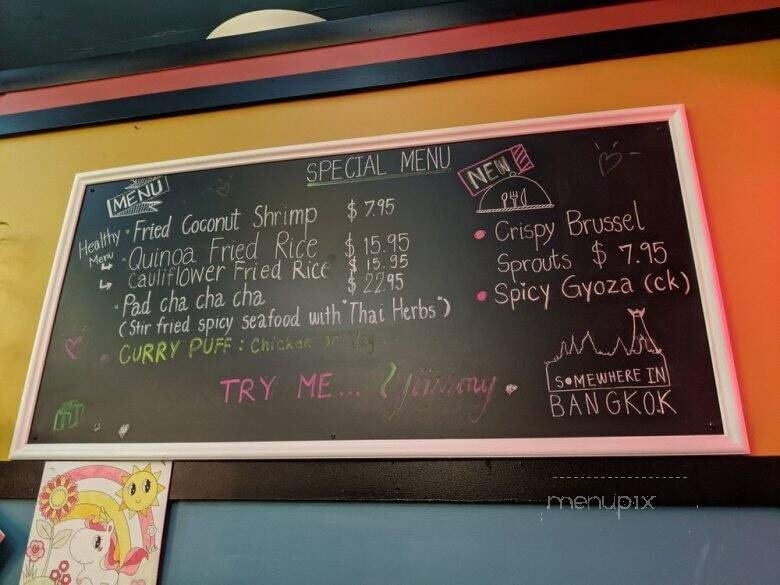 SPECIAL MENU
MENU
Fried Coconut Shrimp $ 7.95
Healthy Menu
Quinoa Fried Rice $ 15.95
Cauliflower Fried Rice $ 15.95
Pad cha cha cha $ 22.95
(Stir fried spicy seafood with "Thai Herbs")
CURRY PUFF : Chicken or Veg
TRY ME... Yummy
NEW
Crispy Brussel
Sprouts $ 7.95
Spicy Gyoza (ck)
SOMEWHERE IN
BANGKOK
menupix